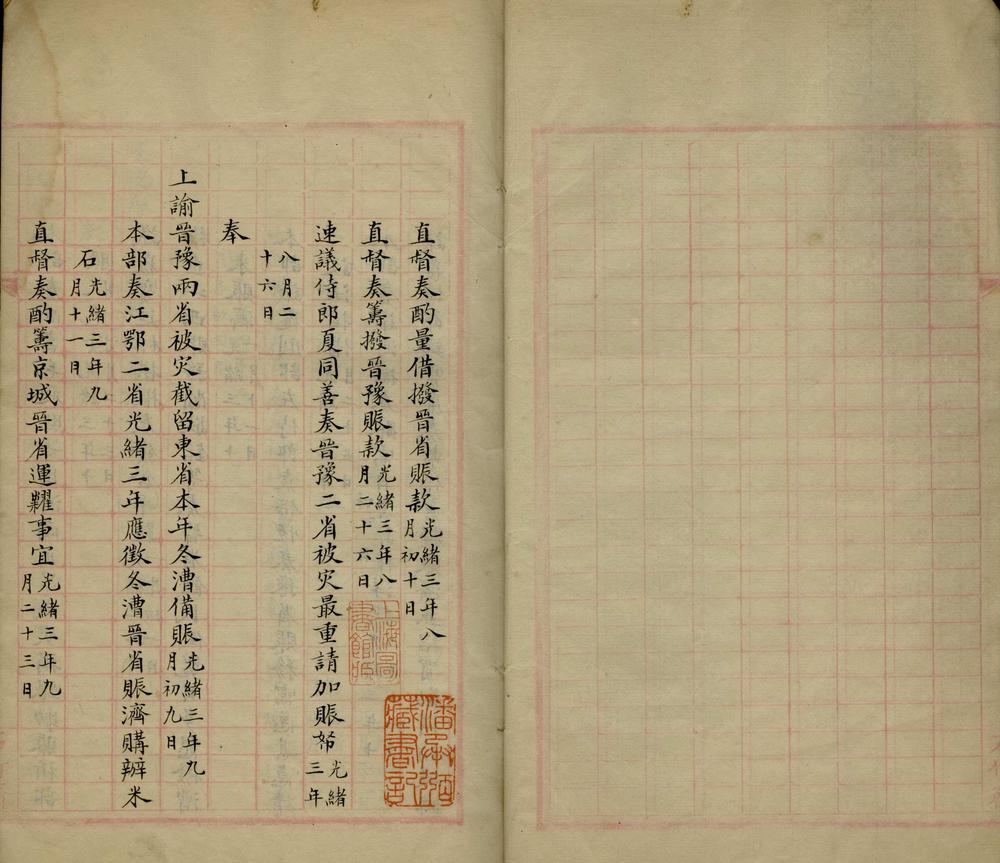 直督奏酌量借撥晉省賑款光緒三年八月初十日
直督奏籌撥晉豫賑款光緒三年八月二十六日
速議侍郎夏同善奏晉豫二省被災最重請加賑帑光緒三年
八月二十六日
奉
上諭晉豫兩省被災截留東省本年冬漕備賑光緒三年九月初九日
本部奏江鄂二省光緒三年應徵冬漕晉省賑濟購辦米
石光緒三年九月十一日
直督奏酌籌京城晉省運糶事宜光緒三年九月二十三日
上海圖書館藏
藏書記